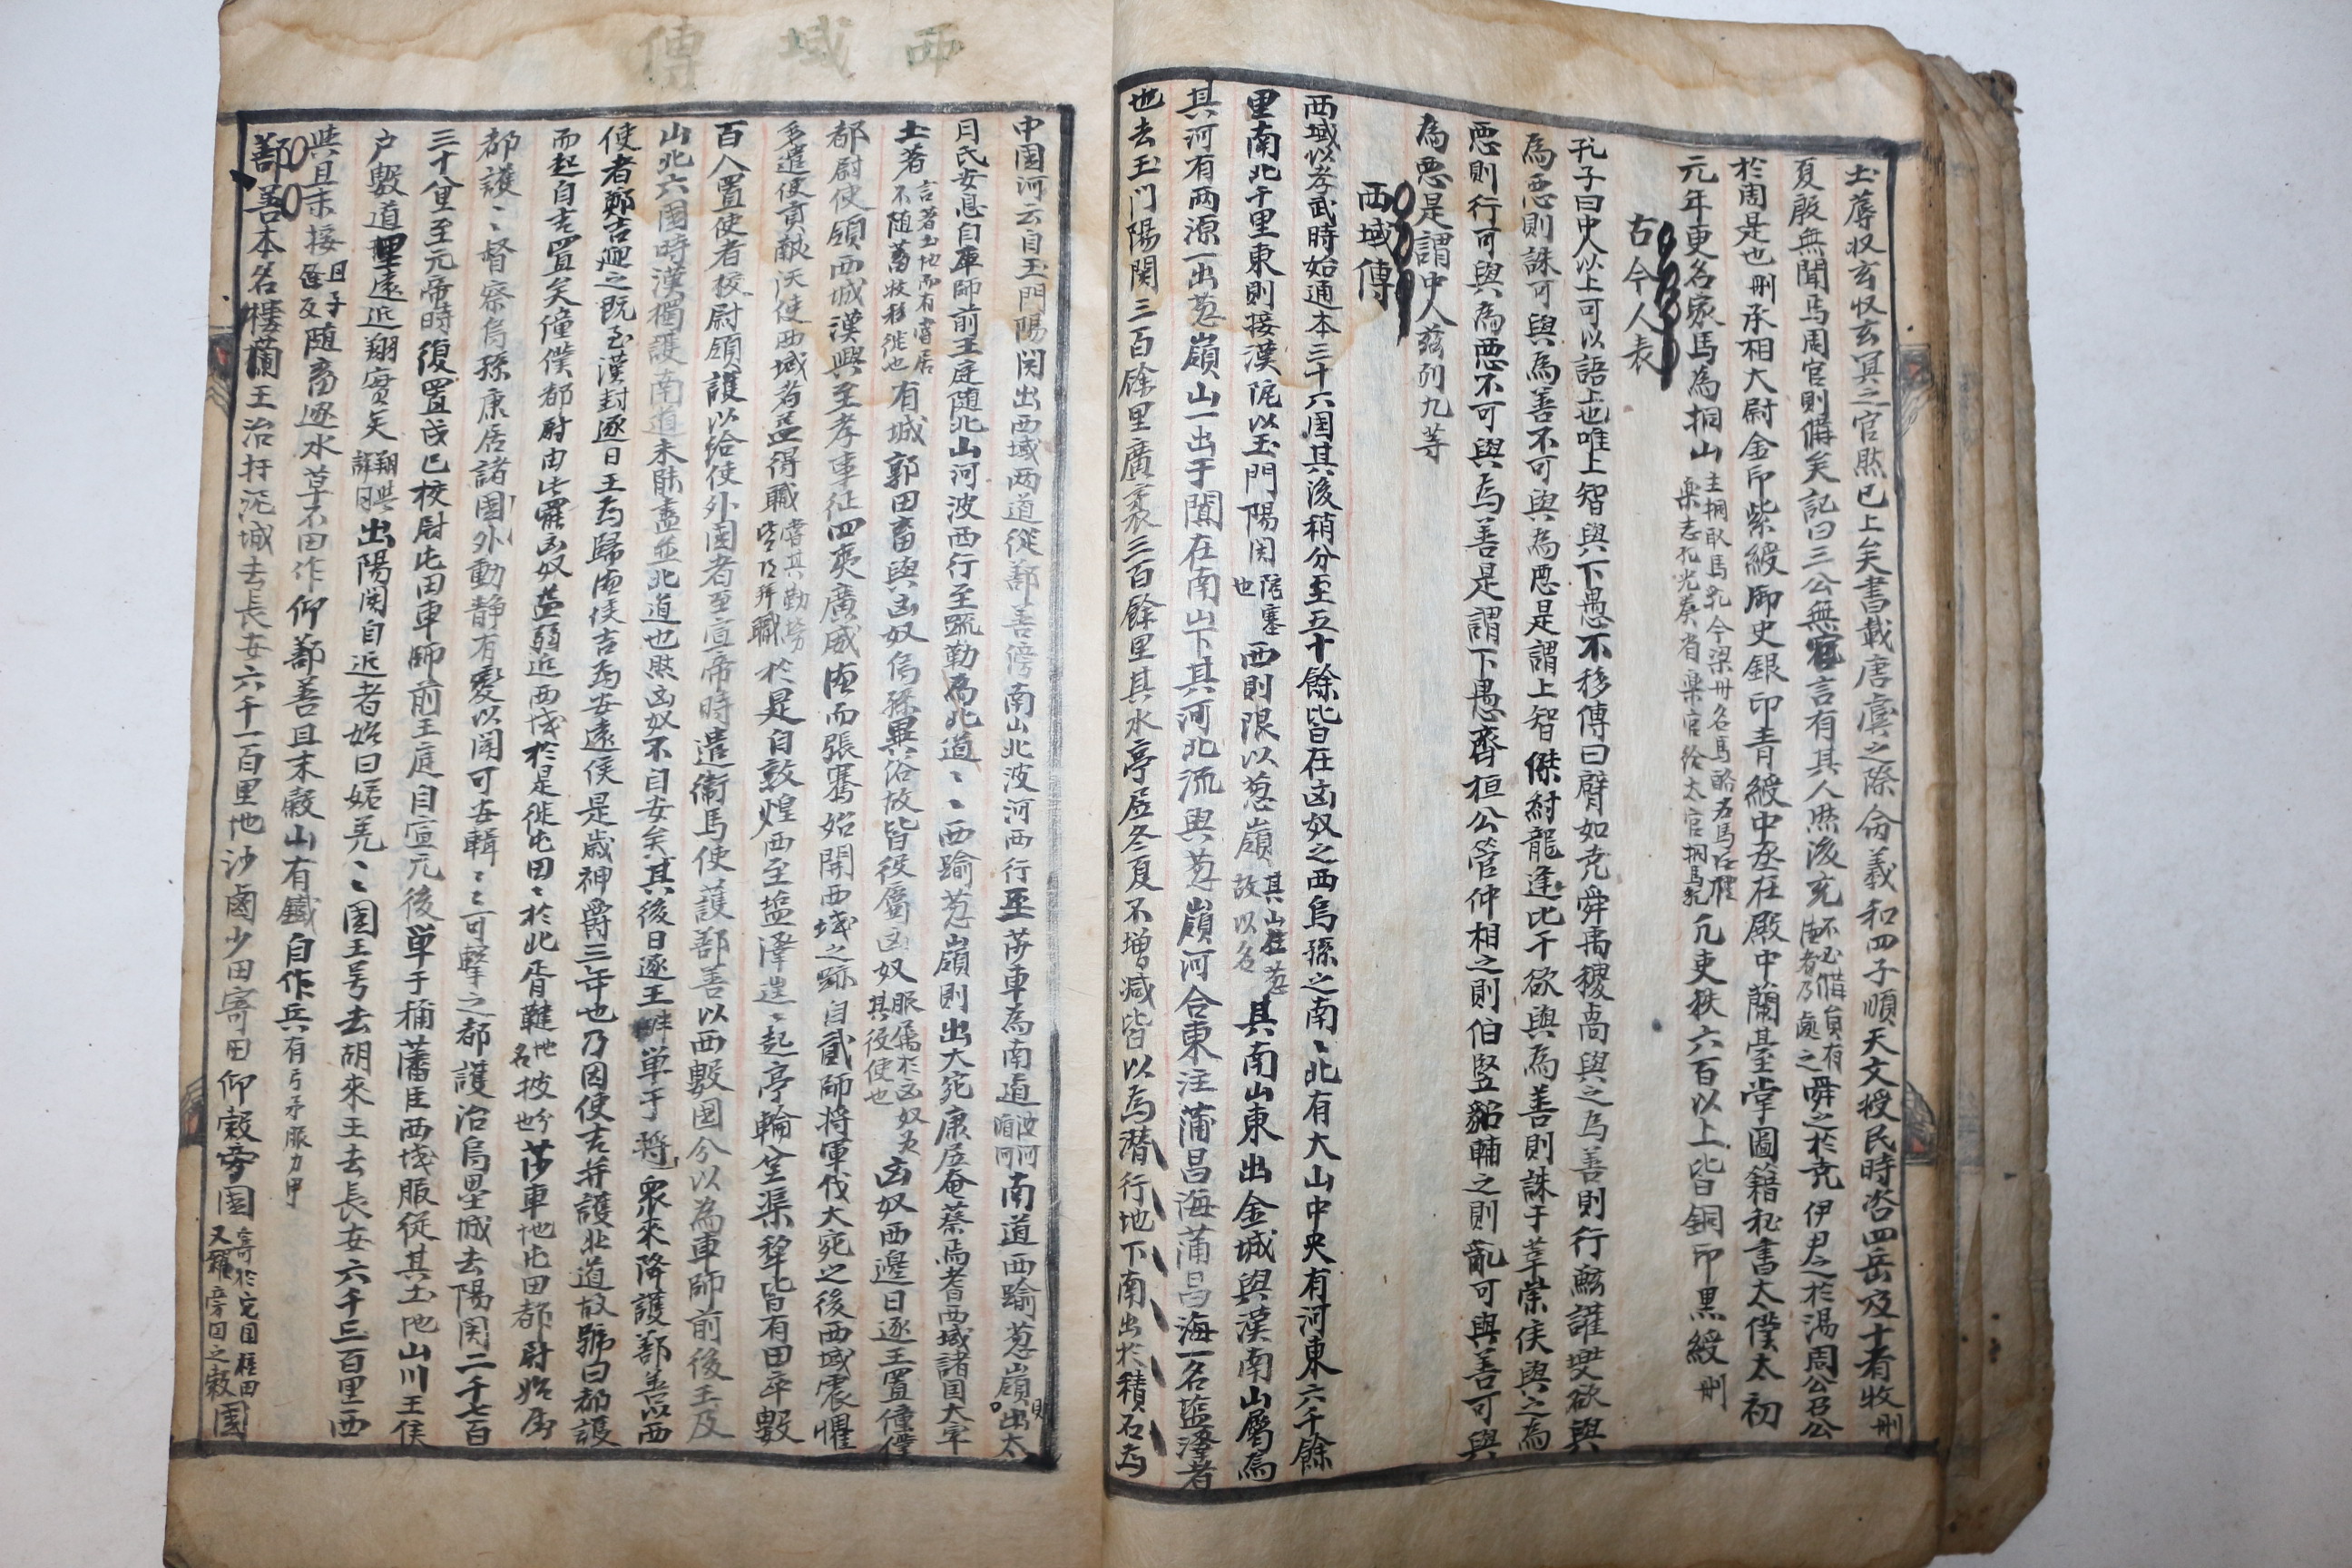 土蓐収玄収玄冥之官然已上矣書載唐虞之際命義和四子順天文授民時咨四岳及十者牧刪
夏殷無聞焉周官則備矣記曰三公無官言有其人然後充不必備員有德者乃處之舜之於堯伊尹之於湯周公召公
於周是也刪丞相大尉金印紫綬御史銀印青綬中丞在殿中蘭臺掌圖籍秘書太僕太初
元年更名家馬為挏山主挏取馬乳今梁州名馬酪為馬酒禮樂志孔光奏省樂官給太官挏馬乳凡吏秩六百以上皆銅印黑綬刪
古今人表
孔子曰中人以上可以語上也唯上智與下愚不移傳曰臂如堯舜禹稷卨與之為善則行鮌讙兠欲與
為惡則誅可與為善不可與為惡是謂上智傑紂龍逢比干欲與為善則誅于莘崇侯與之為
惡則行可與為惡不可與為善是謂下愚齊桓公管仲相之則伯竪貂輔之則亂可與善可與
為惡是謂中人茲列九等
西域傳
西域以孝武時始通本三十六国其後稍分至五十餘皆在凶奴之西烏孫之南〻北有大山中央有河東六千餘
里南北千里東則接漢阸以玉門陽関陪塞也西則限以葱嶺其山在葱故以名其南山東出金城與漢南山屬焉
其河有两源一出葱嶺山一出于闐在南山下其河北流與葱嶺河合東注蒲昌海蒲昌海一名盐澤者
也去玉门陽関三百餘里廣袤三百餘里其水亭居冬夏不增减皆以為潜行地下南出於積石為
西域傳
中國河云自玉門陽関出西域两道從鄯善傍南山北波河西行至莎車為南道波河循河南道西踰葱嶺則出大
月氏安息自車師前王庭随北山河波西行至疏勒為北道〻西踰葱嶺則出大宛康居奄蔡焉耆西域諸国大率
土著言著土地而有常居不随畜牧移徙也有城郭田畜與凶奴烏孫異俗故皆役屬凶奴服属於凶奴為其役使也凶奴西邊日逐王置僮僕
都尉使領西域漢興至孝車征四夷廣威德而張騫始開西域之跡自貳師将軍伐大宛之後西域震懼
多遣使貢献漢使西域者益得職賞其勤勞皆得拜職於是自敦煌西至盐澤遑〻起亭輪䑓渠犂皆有田卒數
百人置使者校尉領護以給使外国者至宣帝時遣衛馬使護鄯善以西數國分以為車師前後王及
山北六國時漢獨護南道未能盡並北道也然凶奴不自安矣其後日逐王畔单于将衆來降護鄯善以西
使者鄭吉迎之既至漢封逐日王為歸德侯吉為安遠侯是歲神爵三年也乃因使吉并護北道故號曰都護
而起自吉置矣僮僕都尉由此罷凶奴益弱近西域於是徙屯田〻於北胥鞬地名披分也莎車地屯田都尉始属
都護〻督察烏孫康居諸國外動静有變以聞可安輯〻之可擊之都護治烏壘城去陽関二千七百
三十八里至元帝時復置戊巳校尉屯田車師前王庭自宣元後单于稱藩臣西域服從其土地山川王侯
户數道里遠近翔實矣翔與詳同出陽関自近者始曰婼羌〻國王号去胡來王去長安六千三百里西
與且末接且子余反随畜逐水草不田作仰鄯善且末穀山有鐵自作兵有弓矛服刀甲
鄯善本名樓蘭王治扜泥城去長安六千一百里地沙鹵少田寄田仰穀旁國寄於它国種田又糴旁国之穀國